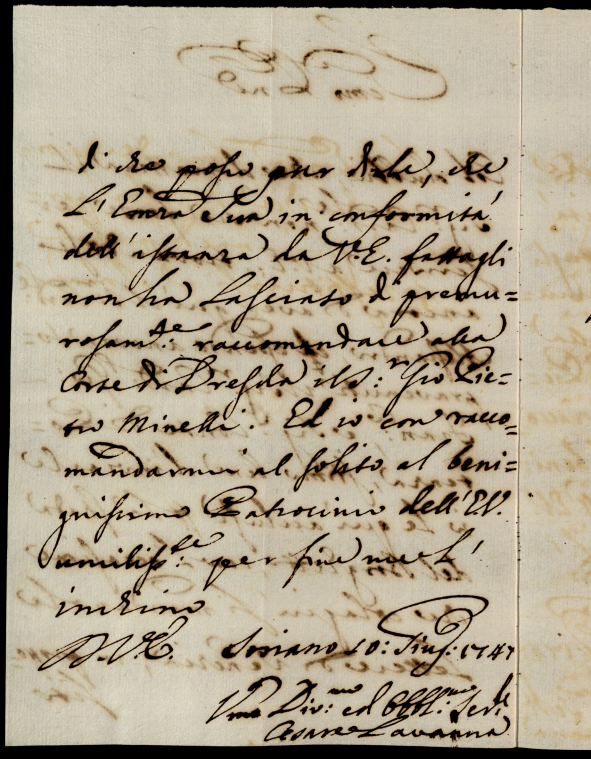 di che posso pur dirle, che
L'Emza Sua in conformità
dell'istanza da V.E. fattagli
non ha lasciato di premu=
rosam.te raccomandare alla
Corte di Dresda il S.r Gio Pie=
tro Minelli. Ed io con racco=
mandarmi al solito al beni=
gnissimo Patrocinio dell'EV.
umiliss.te per fine me L'
inchino
D.V.E. Soriano 10: Giug: 1747
Umo Div.mo ed Obbl.mo
Cesare